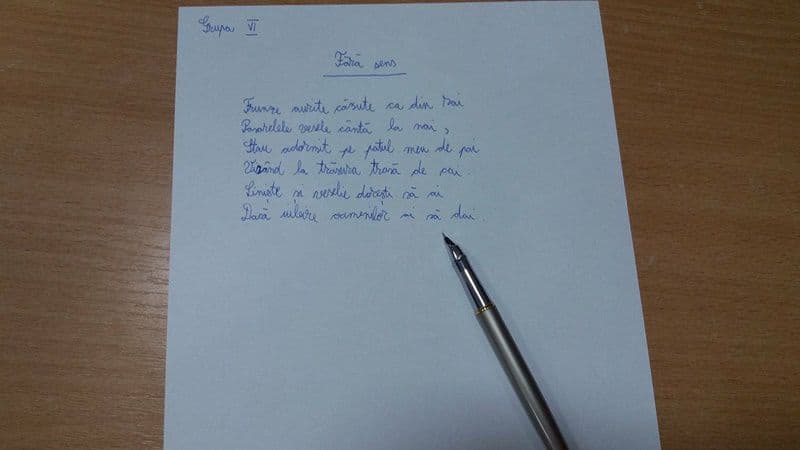 Grupa VI
Fără sens
Frunze aurite căzute ca din Rai
Pasarelele vesele cântă la nai,
Stau adormit pe patul meu de pai
Visând la trăsura trasă de cai.
Liniște și veselie dorești să ai
Dacă iubire oamenilor ai să dai.